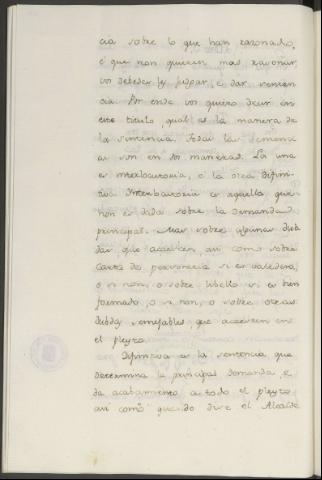 cia sobre lo que han razonado,
é que non quieren mas razonar,
vos debedes ley judgar, é dar senten
cia. Por ende vos quiero decir en
este titulo, qual es la manera de
la sentencia. E decid las sentenci
as son en dos maneras. La una
es interlocutoria, é la otra difini-
tiva. Interlocutoria es aquella que
non es dada sobre la demanda
principal. Mas sobre algunas dub
das que acaescen asi como sobre
Carta de personeria si es valedera,
o si non, o sobre libello si es bien
formado, o si non, o sobre otras
dubdas semejables, que acaescen en
el pleyto.
Difinitiva es la sentencia, que
determina la principal demanda, é
da acabamiento a todo el pleyto
asi como quando dice el Alcalde